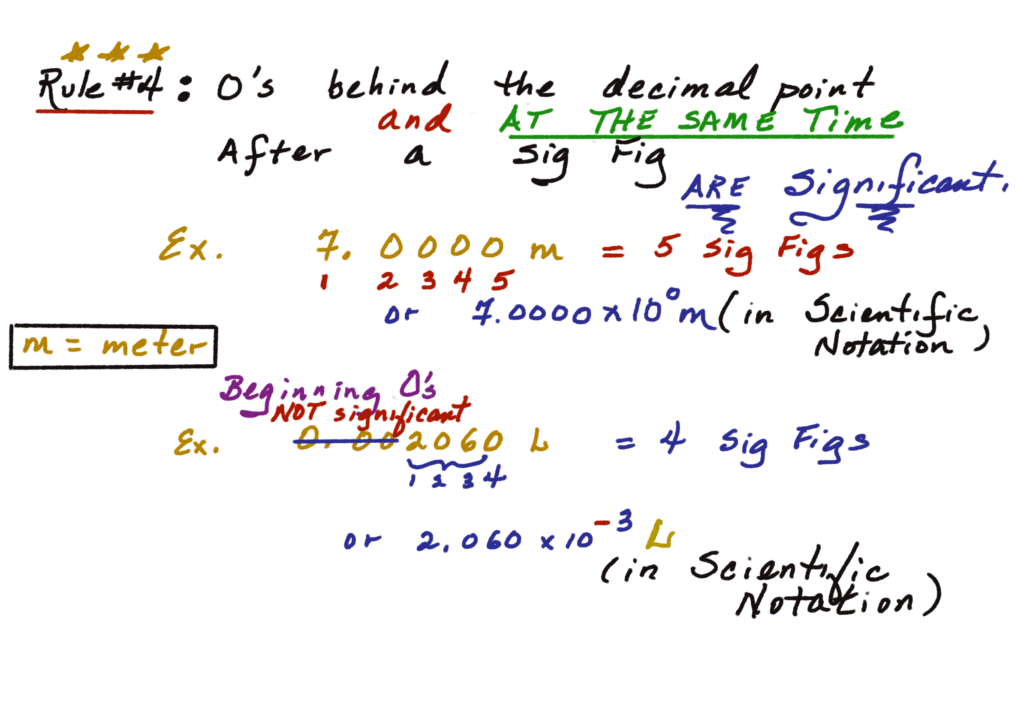 Rule #4: 0's behind the decimal point
and AT THE SAME Time
After a sig Fig
ARE Significant.
Ex. 7.0000 m = 5 Sig Figs
1 2 3 4 5
or 7.0000 x 10⁰ m (in Scientific
Notation)
m = meter
Beginning 0's
NOT significant
Ex. 0.002060 L = 4 Sig Figs
1 2 3 4
or 2.060 x 10⁻³ L
(in Scientific
Notation)